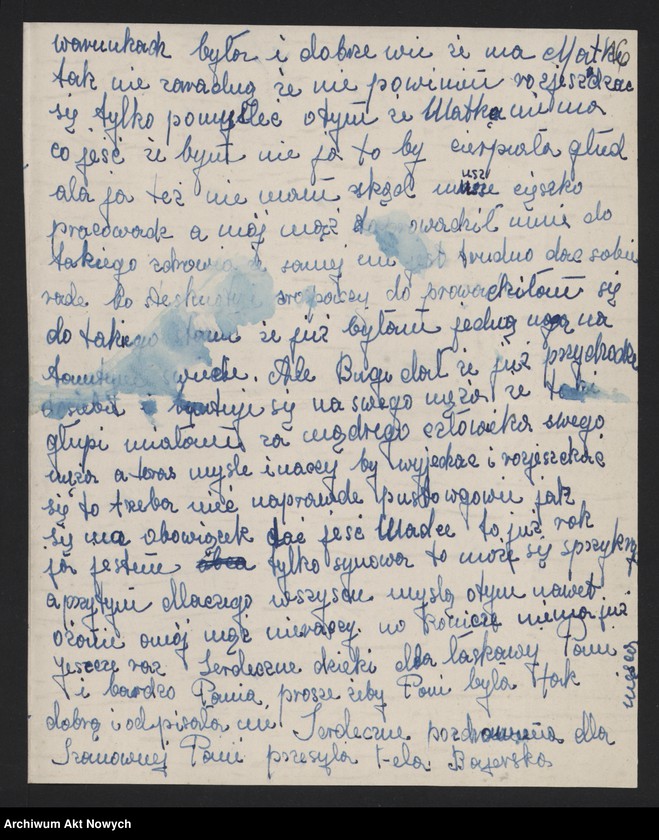 warunkach był i dobrze wie że ma Matkę 16
tak nie zaradną że nie powinien rozjeżdżac
się tylko pomysleć otym że Matka nie ma
co jeść że bym nie ja to by cierpiała głód
ala ja też nie mam skąd musze cięszko
pracowadz a mój mąż doprowadził mnie do
takiego zdrowia samej mi jest trudno dac sobie
rade bo do prowadziłam się
do takiego stanu że już byłam jedną nogą na
tamtym swiecie. Ale Bug dał że już przychodze
się na swego męża że
głupi miałam za mądrego człowieka swego
męża a teras mysle inaczy by wyjechac i rozjeszchać
się to trzeba mieć naprawde pusto w głowie jak
się ma obowiązek dać jeść Madce to już rok
ja jestem tylko synowa to może się sprzykrzy
a przytym dlaczego wszyscy myslą otym nawet
ożonie a mój mąż nieraczy. no kończe niema już
Jeszcze raz Serdeczne dzieki dla łaskawy Pani miejsca
i bardzo Pania prosze żeby Pani była tak
dobrą i odpisała mi Serdeczne pozdrowienia dla
Szanownej Pani przesyła Bajerska
Archiwum Akt Nowych